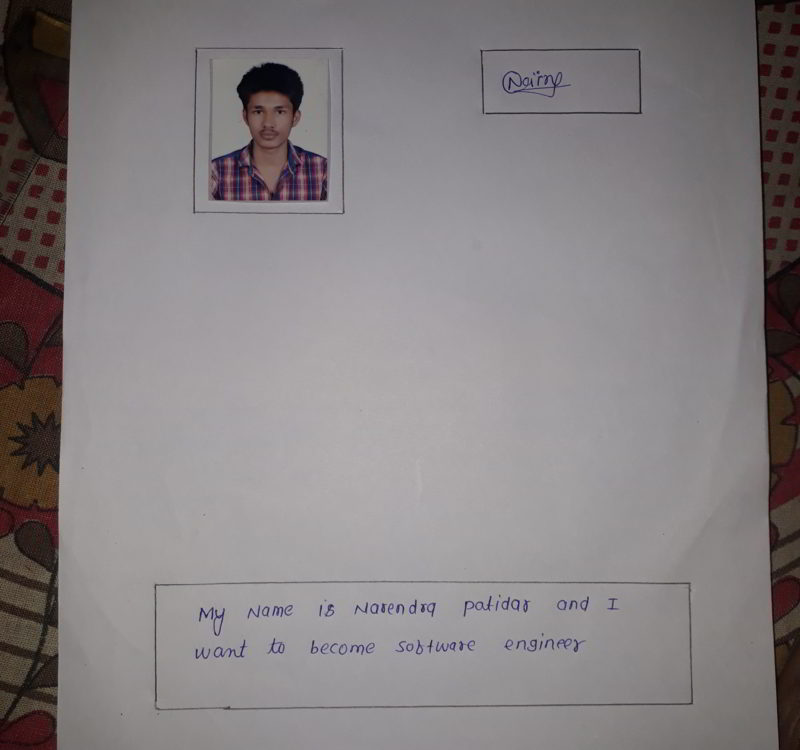 My Name is Narendra patidar and I
want to become software engineer